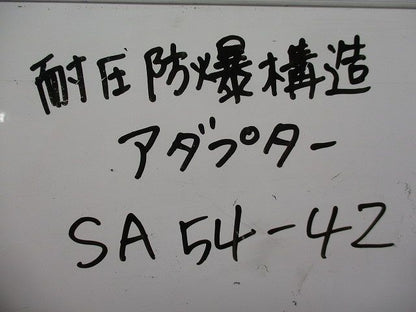 耐圧防爆構造
アダプター
SA 54-42